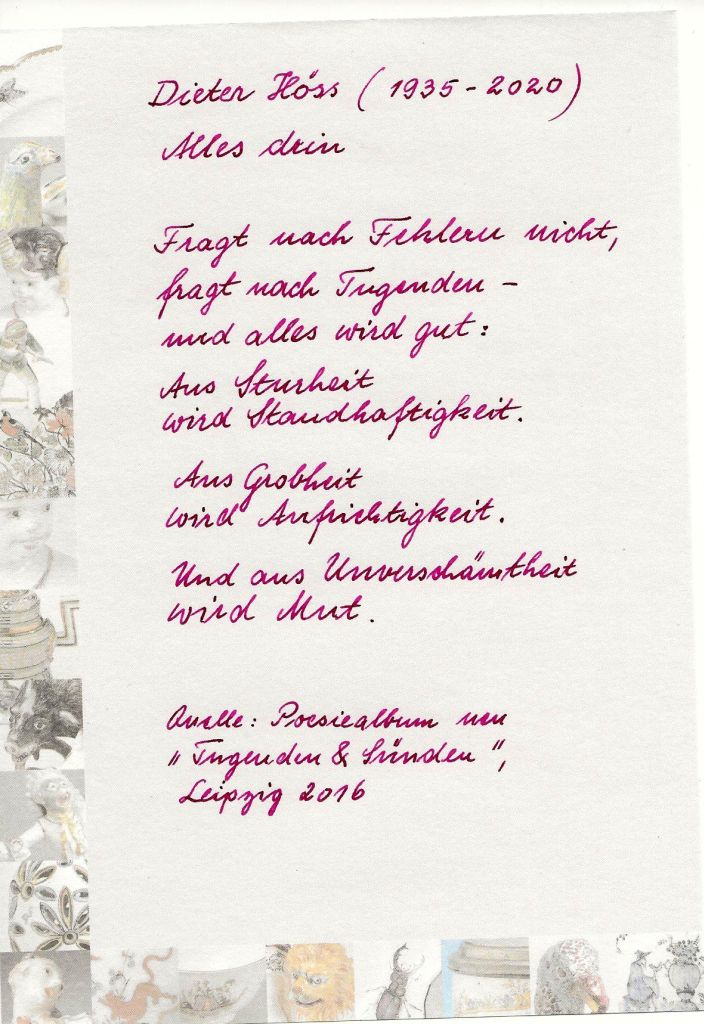 Dieter Höss (1935-2020)
Alles drin
Fragt nach Fehlern nicht,
fragt nach Tugenden –
und alles wird gut:
Aus Sturheit
wird Standhaftigkeit.
Aus Grobheit
wird Aufrichtigkeit.
Und aus Unverschämtheit
wird Mut.
Quelle: Poesiealbum neu
„Tugenden & Sünden",
Leipzig 2016